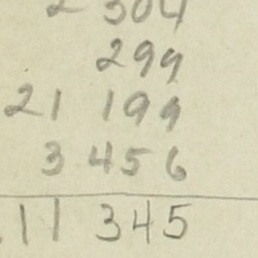 2 304
299
21 199
3 456
11 345